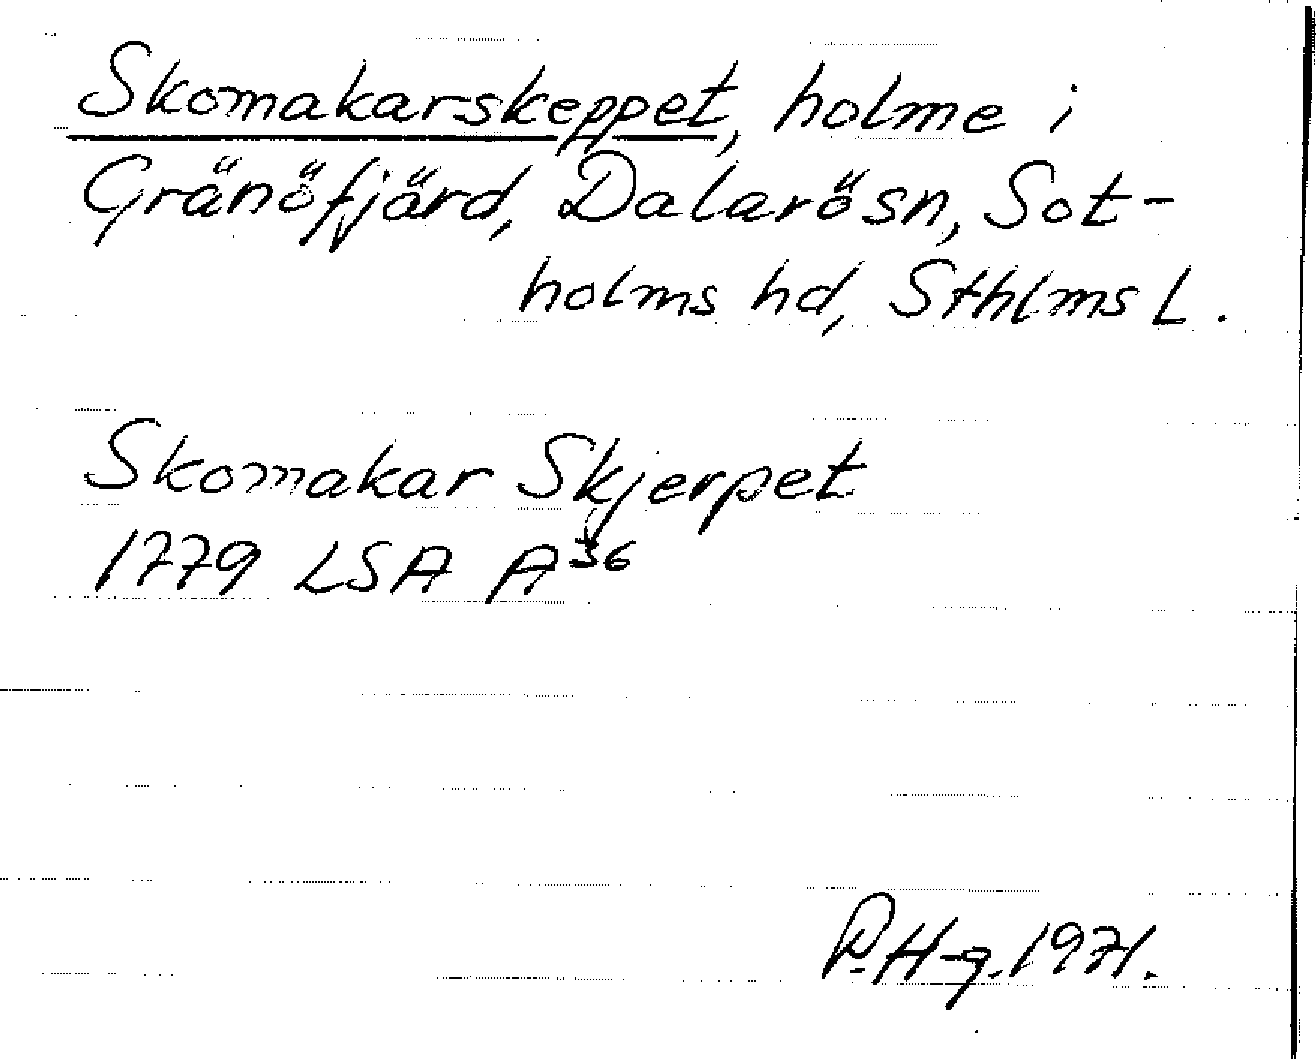 Skomakarskeppet, holme i
Gränöfjärd, Dalarösn, Sot-
holms hd, Sthlms L.
Skomakar Skjerpet
1779 LSA A36
P. H-g. 1971.